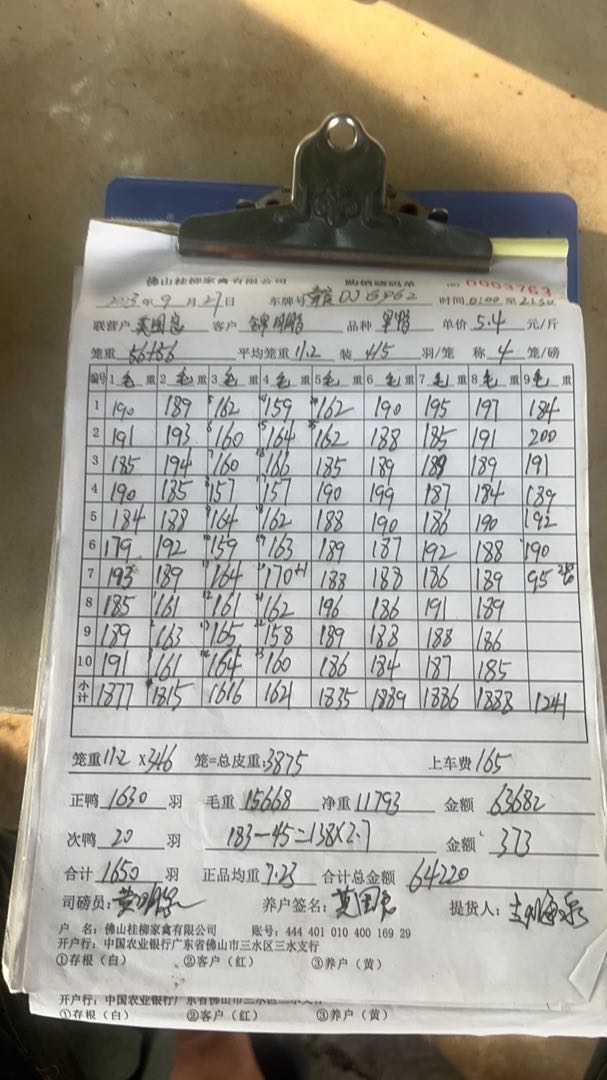 佛山桂柳家禽有限公司 购销磅码单 0003763
2023年9月27日 车牌号 时间0:00至21:50
联营户 莫国 客户 品种 单价5.4元/斤
笼重56+56 平均笼重11.2 装415羽/笼 称4笼/磅
编号 1毛重 2毛重 3毛重 4毛重 5毛重 6毛重 7毛重 8毛重 9毛重
1 190 189 162 159 162 190 195 197 184
2 191 193 160 164 162 188 185 191 200
3 185 194 160 166 185 189 189 189 191
4 190 185 157 157 190 199 187 184 189
5 184 188 164 162 188 190 186 190 192
6 179 192 159 163 189 187 192 188 190
7 193 189 164 170+1 188 188 186 189 95
8 185 161 161 162 196 186 191 189
9 189 163 165 158 189 188 188 186
10 191 161 164 160 186 184 187 185
小计 1877 1815 1616 1621 1835 1889 1886 1888 1241
笼重11.2×346 笼=总皮重:3875 上车费165
正鸭1630羽 毛重15668 净重11793 金额63682
次鸭20羽 183-45=138×2.7 金额373
合计1650羽 正品均重7.23 合计总金额64220
司磅员: 养户签名:莫国 提货人:
户 名:佛山桂柳家禽有限公司 账号:444 401 010 400 169 29
开户行:中国农业银行广东省佛山市三水区三水支行
①存根(白) ②客户(红) ③养户(黄)
开户行:中国农业银行广东省佛山市三水区三水支行
①存根(白) ②客户(红) ③养户(黄)